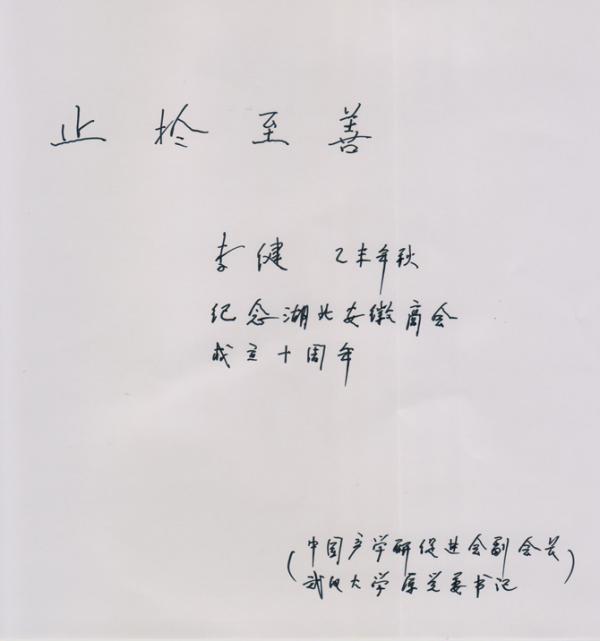 止於至善
李健 乙未年秋
纪念湖北安徽商会
成立十周年
(中国产学研促进会副会长
武汉大学原党委书记)